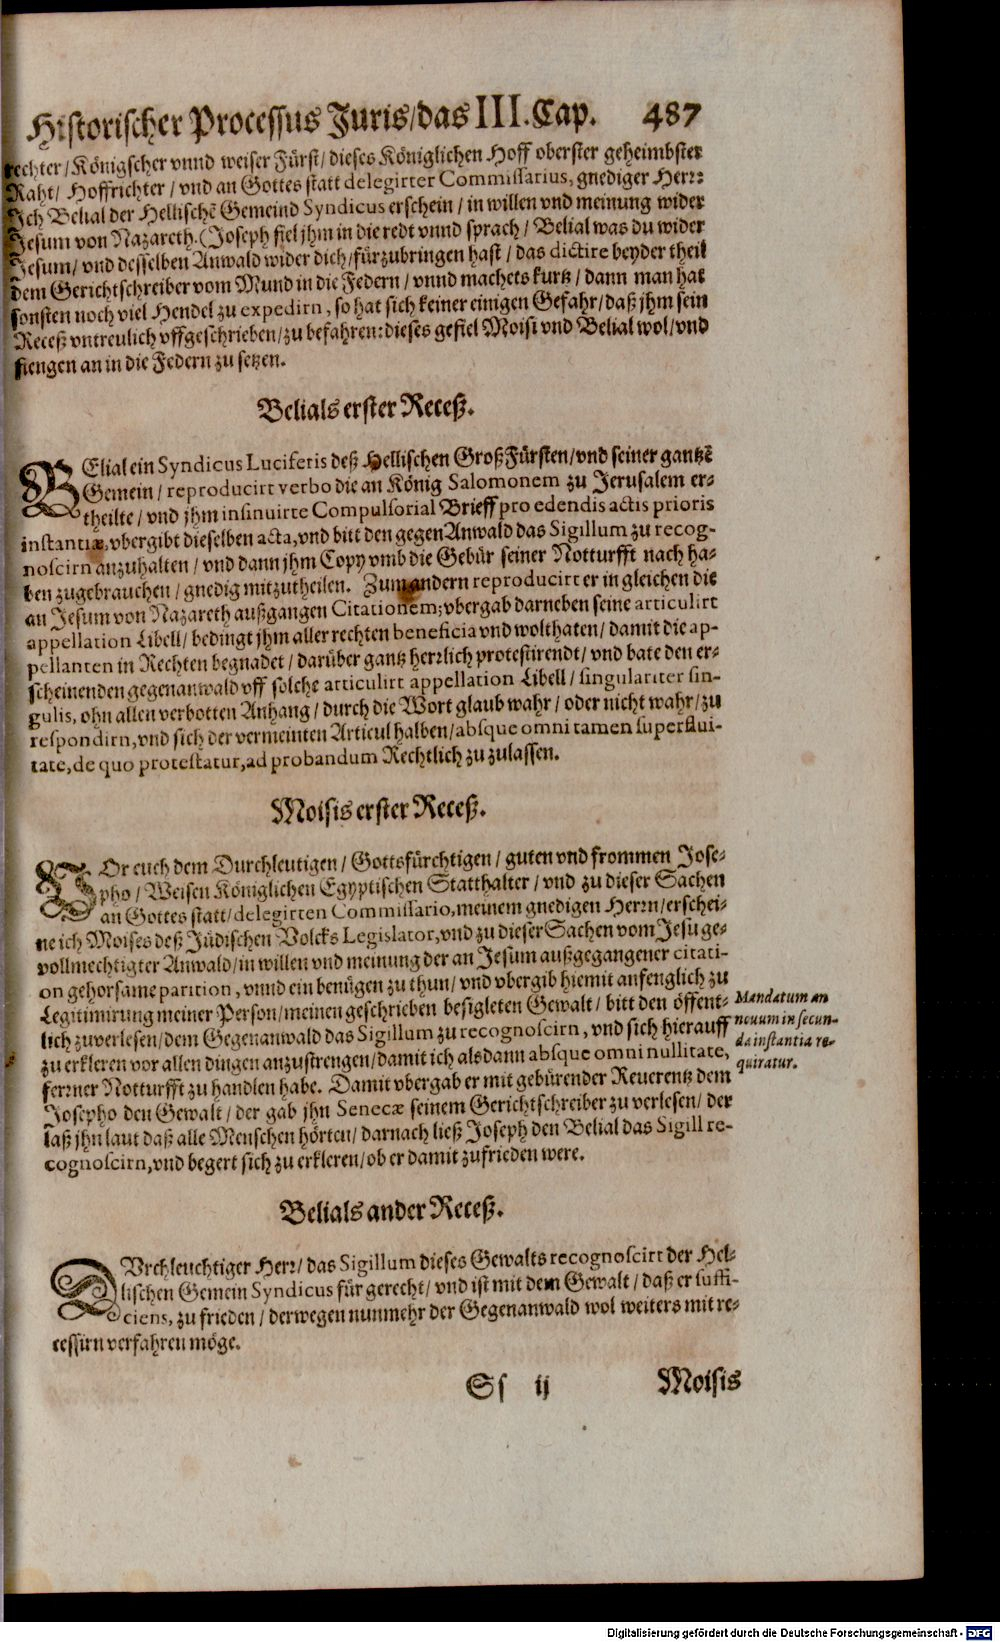 Historischer Processus Juris/das III. Cap. 487
rechter/Königscher vnnd weiser Fürst/dieses Königlichen Hoff oberster geheimbster
Raht/ Hoffrichter/vnd an Gottes statt delegirter Commissarius, gnediger Herr:
Ich Belial der Hellischẽ Gemeind Syndicus erschein/in willen vnd meinung wider
Jesum von Nazareth. (Joseph fiel jhm in die redt vnnd sprach/ Belial was du wider
Jesum/vnd desselben Anwald wider dich/fürzubringen hast/ das dictire beyder theil
dem Gerichtschreiber vom Mund in die Federn/vnnd machets kurtz/ dann man hat
sonsten noch viel Hendel zu expedirn, so hat sich keiner einigen Gefahr/daß jhm sein
Receß vntreulich vffgeschrieben/zu befahren: dieses gefiel Moisi vnd Belial wol/vnd
fiengen an in die Federn zu setzen.
Belials erster Receß.
BElial ein Syndicus Luciferis deß Hellischen GroßFürsten/vnd seiner gantzẽ
Gemein/ reproducirt verbo die an König Salomonem zu Jerusalem er-
theilte/ vnd jhm insinuirte Compulsorial Brieff pro edendis actis prioris
instantiæ, vbergibt dieselben acta, vnd bitt den gegenAnwald das Sigillum zu recog-
noscirn anzuhalten/ vnd dann jhm Copy vmb die Gebür seiner Notturfft nach ha-
ben zugebrauchen/gnedig mitzutheilen. Zum andern reproducirt er in gleichen die
an Jesum von Nazareth außgangen Citationem; vbergab darneben seine articulirt
appellation Libell/ bedingt jhm aller rechten beneficia vnd wolthaten/ damit die ap-
pellanten in Rechten begnadet/ darüber gantz herrlich protestirendt/ vnd bate den er-
scheinenden gegenanwald vff solche articulirt appellation Libell/ singulariter sin-
gulis, ohn allen verbotten Anhang/ durch die Wort glaub wahr/ oder nicht wahr/zu
respondirn, vnd sich der vermeinten Articul halben/absque omni tamen superflui-
tate, de quo protestatur, ad probandum Rechtlich zu zulassen.
Moisis erster Receß.
VOr euch dem Durchleutigen/ Gottsfürchtigen/ guten vnd frommen Jose-
pho/ Weisen Königlichen Egyptischen Statthalter/ vnd zu dieser Sachen
an Gottes statt/delegirten Commissario, meinem gnedigen Herrn/erschei-
ne ich Moises deß Jüdischen Volcks Legislator, vnd zu dieser Sachen vom Jesu ge-
vollmechtigter Anwald/in willen vnd meinung der an Jesum außgegangener citati-
on gehorsame parition, vnnd ein benügen zu thun/ vnd vbergib hiemit anfenglich zu
Legitimirung meiner Person/meinen geschrieben besigleten Gewalt/ bitt den öffent-
lich zuverlesen/dem Gegenanwald das Sigillum zu recognoscirn, vnd sich hierauff
zu erkleren vor allen dingen anzustrengen/damit ich alsdann absque omni nullitate,
ferrner Notturfft zu handlen habe. Damit vbergab er mit gebürender Reuerentz dem
Josepho den Gewalt/ der gab jhn Senecæ seinem Gerichtschreiber zu verlesen/ der
laß jhn laut daß alle Menschen hörten/ darnach ließ Joseph den Belial das Sigill re-
cognoscirn, vnd begert sich zu erkleren/ob er damit zufrieden were.
Mandatum an
nouum in secun-
da instantia re-
quiratur.
Belials ander Receß.
DVrchleuchtiger Herr/das Sigillum dieses Gewalts recognoscirt der Hel-
lischen Gemein Syndicus für gerecht/ vnd ist mit dem Gewalt/ daß er suffi-
ciens, zu frieden/ derwegen nunmehr der Gegenanwald wol weiters mit re-
cessirn verfahren möge.
Ss ij Moisis
Digitalisierung gefördert durch die Deutsche Forschungsgemeinschaft - DFG